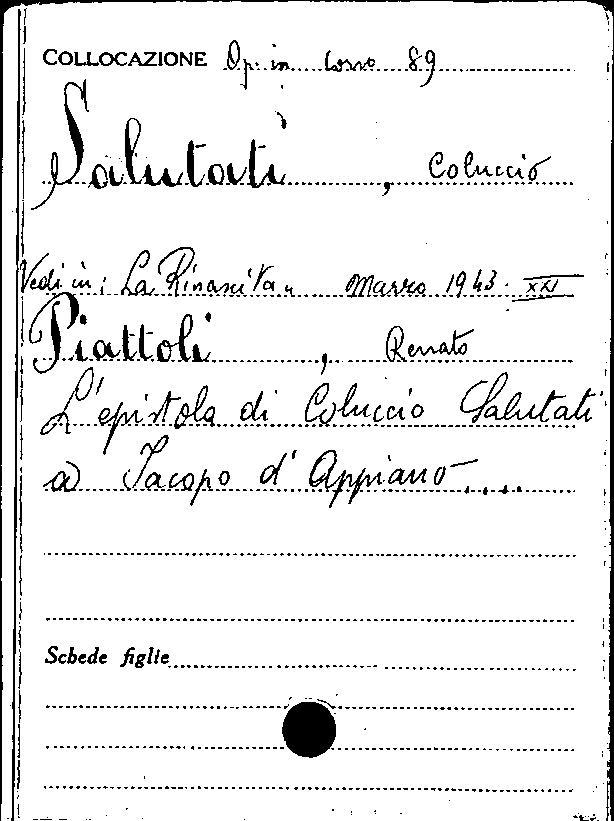 COLLOCAZIONE Op. in corso 89
Salutati , Coluccio
Vedi in: La Rinascita„ Marzo 1943. XXI
Piattoli , Renato
L'epistola di Coluccio Salutati
a Jacopo d'Appiano....
Schede figlie